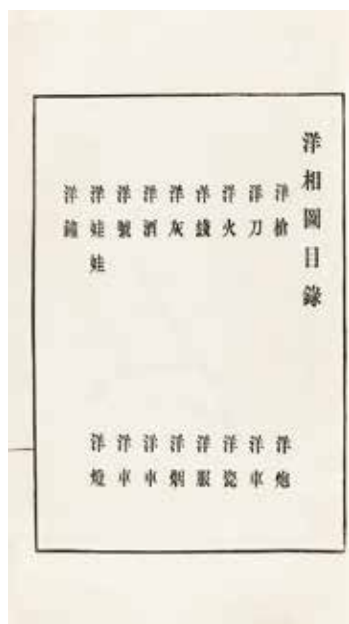 洋相圖目錄
洋槍 洋炮
洋刀 洋車
洋火 洋瓷
洋錢 洋服
洋灰 洋烟
洋酒 洋車
洋號 洋車
洋娃娃 洋燈
洋鐘